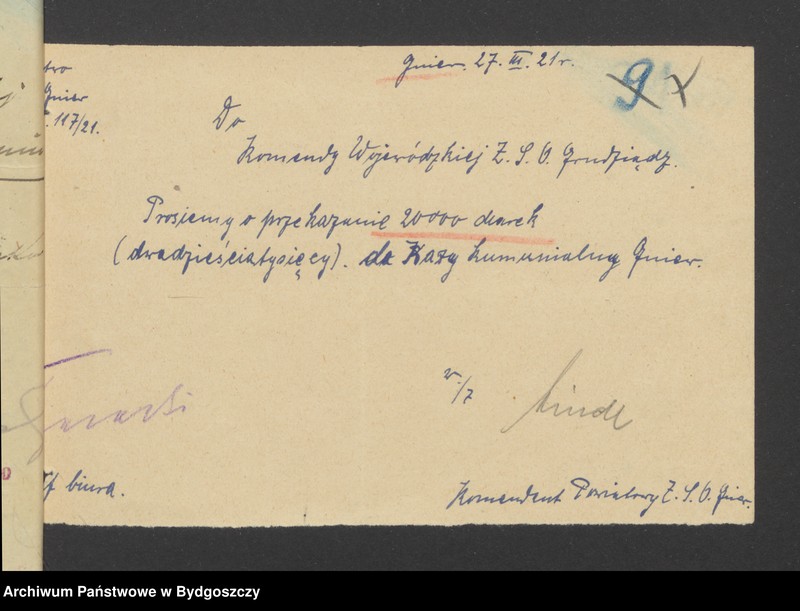 Gniew. 27. III. 21 r.
9
Gniew
117/21.
Do
Komendy Wojewódzkiej Z. S. O. Grudziądz.
Prosiemy o przekazanie 20000 marek
(dwadzieściatysięcy). do Kasy kumunialny Gniew.
w/z
Linde
biura.
Komendent Powiatowy Z. S. O. Gniew.
Archiwum Państwowe w Bydgoszczy